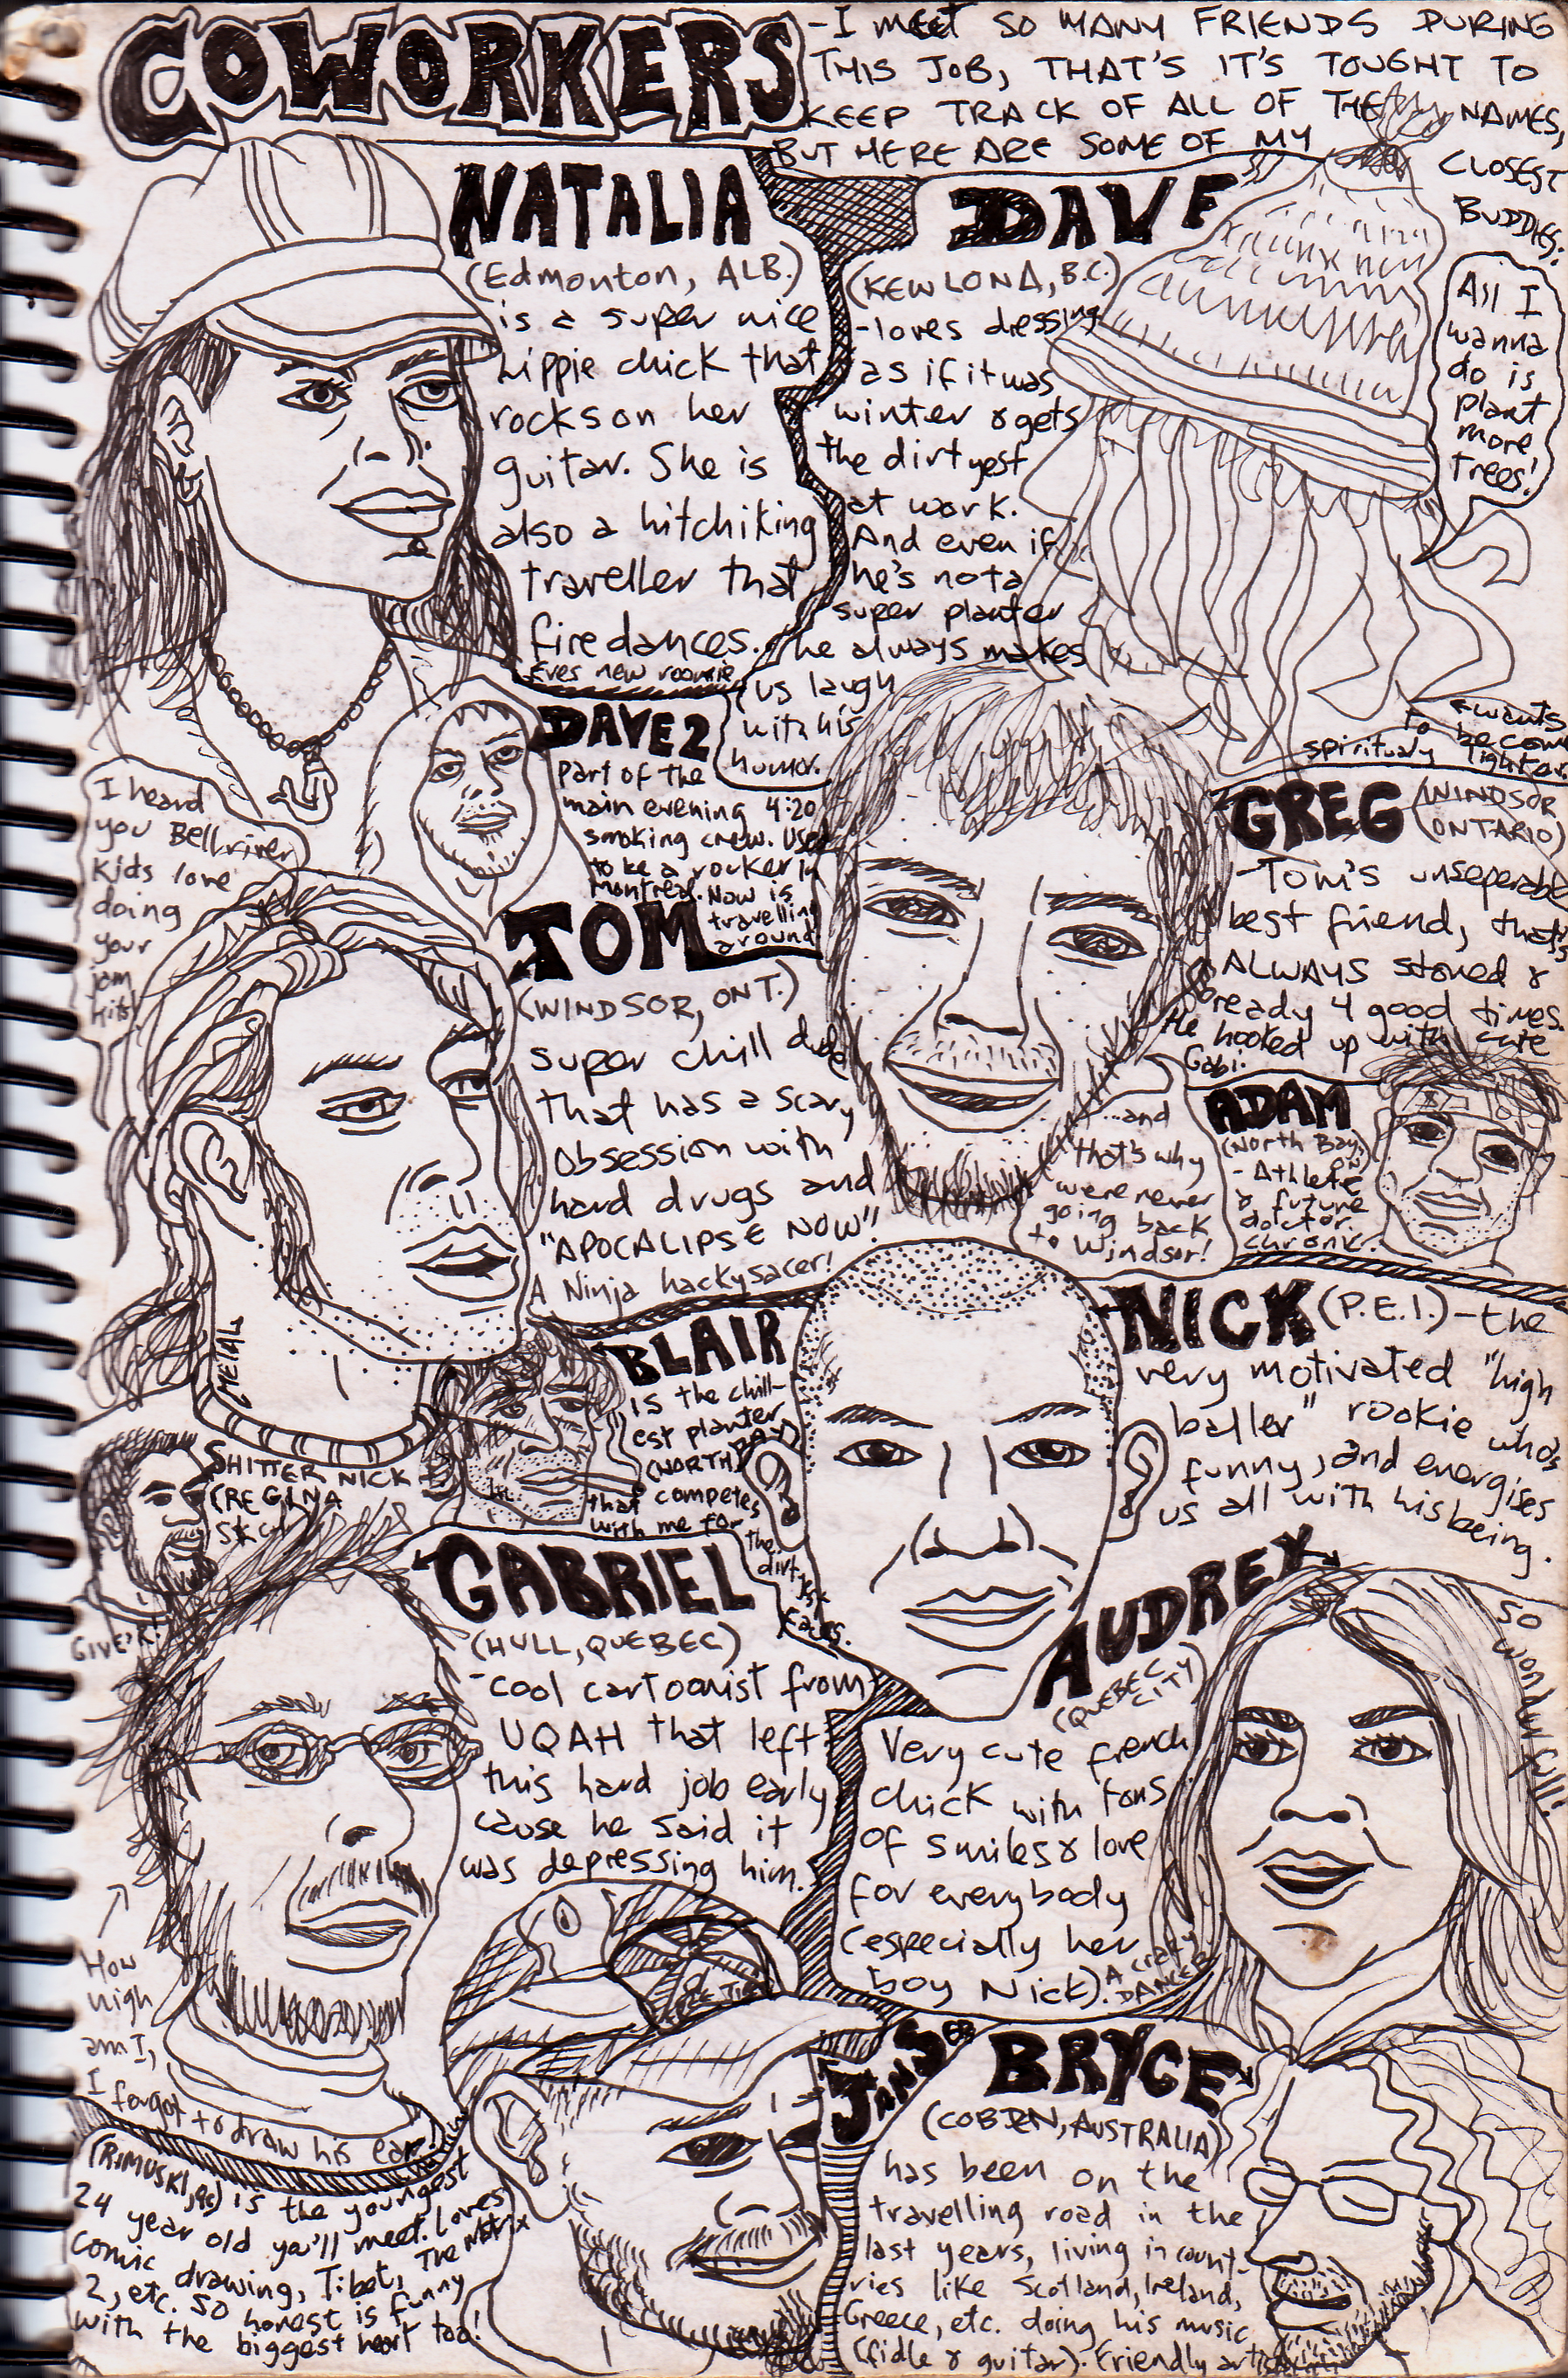 COWORKERS
-I meet SO MANY FRIENDS DURING
THIS JOB, THAT'S IT'S TOUGHT TO
KEEP TRACK OF ALL OF THE NAMES,
BUT HERE ARE SOME OF MY
CLOSEST
BUDDIES:
NATALIA
(Edmonton, ALB.)
is a super nice
hippie chick that
rocks on her
guitar. She is
also a hitchiking
traveller that
fire dances.
Eves new roomie
DAVE
(KEWLONA, B.C.)
-loves dressing
as if it was
winter & gets
the dirtyest
at work.
And even if
he's not a
super planter
he always makes
us laugh
with his
humor.
All I
wanna
do is
plant
more
trees!
wants
to become
spiritualy lighter
DAVE 2
part of the
main evening 4:20
smoking crew. Used
to be a rocker in
Montreal. Now is
travelling
around
I heard
you Bellriver
Kids love
doing
your
jam
hits!
TOM
(WINDSOR, ONT.)
super chill dude
that has a scary
obsession with
hard drugs and
"APOCALIPSE NOW"!
A Ninja hackysacer!
METAL
GREG (WINDSOR
ONTARIO)
-Tom's unseperable
best friend, that's
ALWAYS stoned &
ready 4 good times.
He hooked up with cute
Gabi.
...and
that's why
were never
going back
to Windsor!
ADAM
(North Bay,
ON)
- Athlete
& future
doctor.
chronic.
BLAIR
is the chill-
est planter
(NORTH BAY)
that competes
with me for
the
dirtyest
faces.
NICK (P.E.I.) - the
very motivated "high
baller" rookie who's
funny, and energises
us all with his being.
SHITTER NICK
(REGINA
GIVE'R!
GABRIEL
(HULL, QUEBEC)
-cool cartoonist from
UQAH that left
this hard job early
cause he said it
was depressing him.
How
high
am I,
I forgot to draw his ear!
AUDREY
(QUEBEC
CITY)
Very cute french
chick with tons
of smiles & love
for everybody
(especially her
boy Nick).
A crazy
DANCER
so
wonderfull!
(RIMUSKI, Qc) is the youngest
24 year old you'll meet. Loves
comic drawing, Tibet, The Matrix
2, etc. SO honest is funny
with the biggest heart too!
BRYCE
(COBDEN, AUSTRALIA)
has been on the
travelling road in the
last years, living in count-
ries like Scotland, Ireland,
Greece, etc. doing his music
(fidle & guitar). Friendly